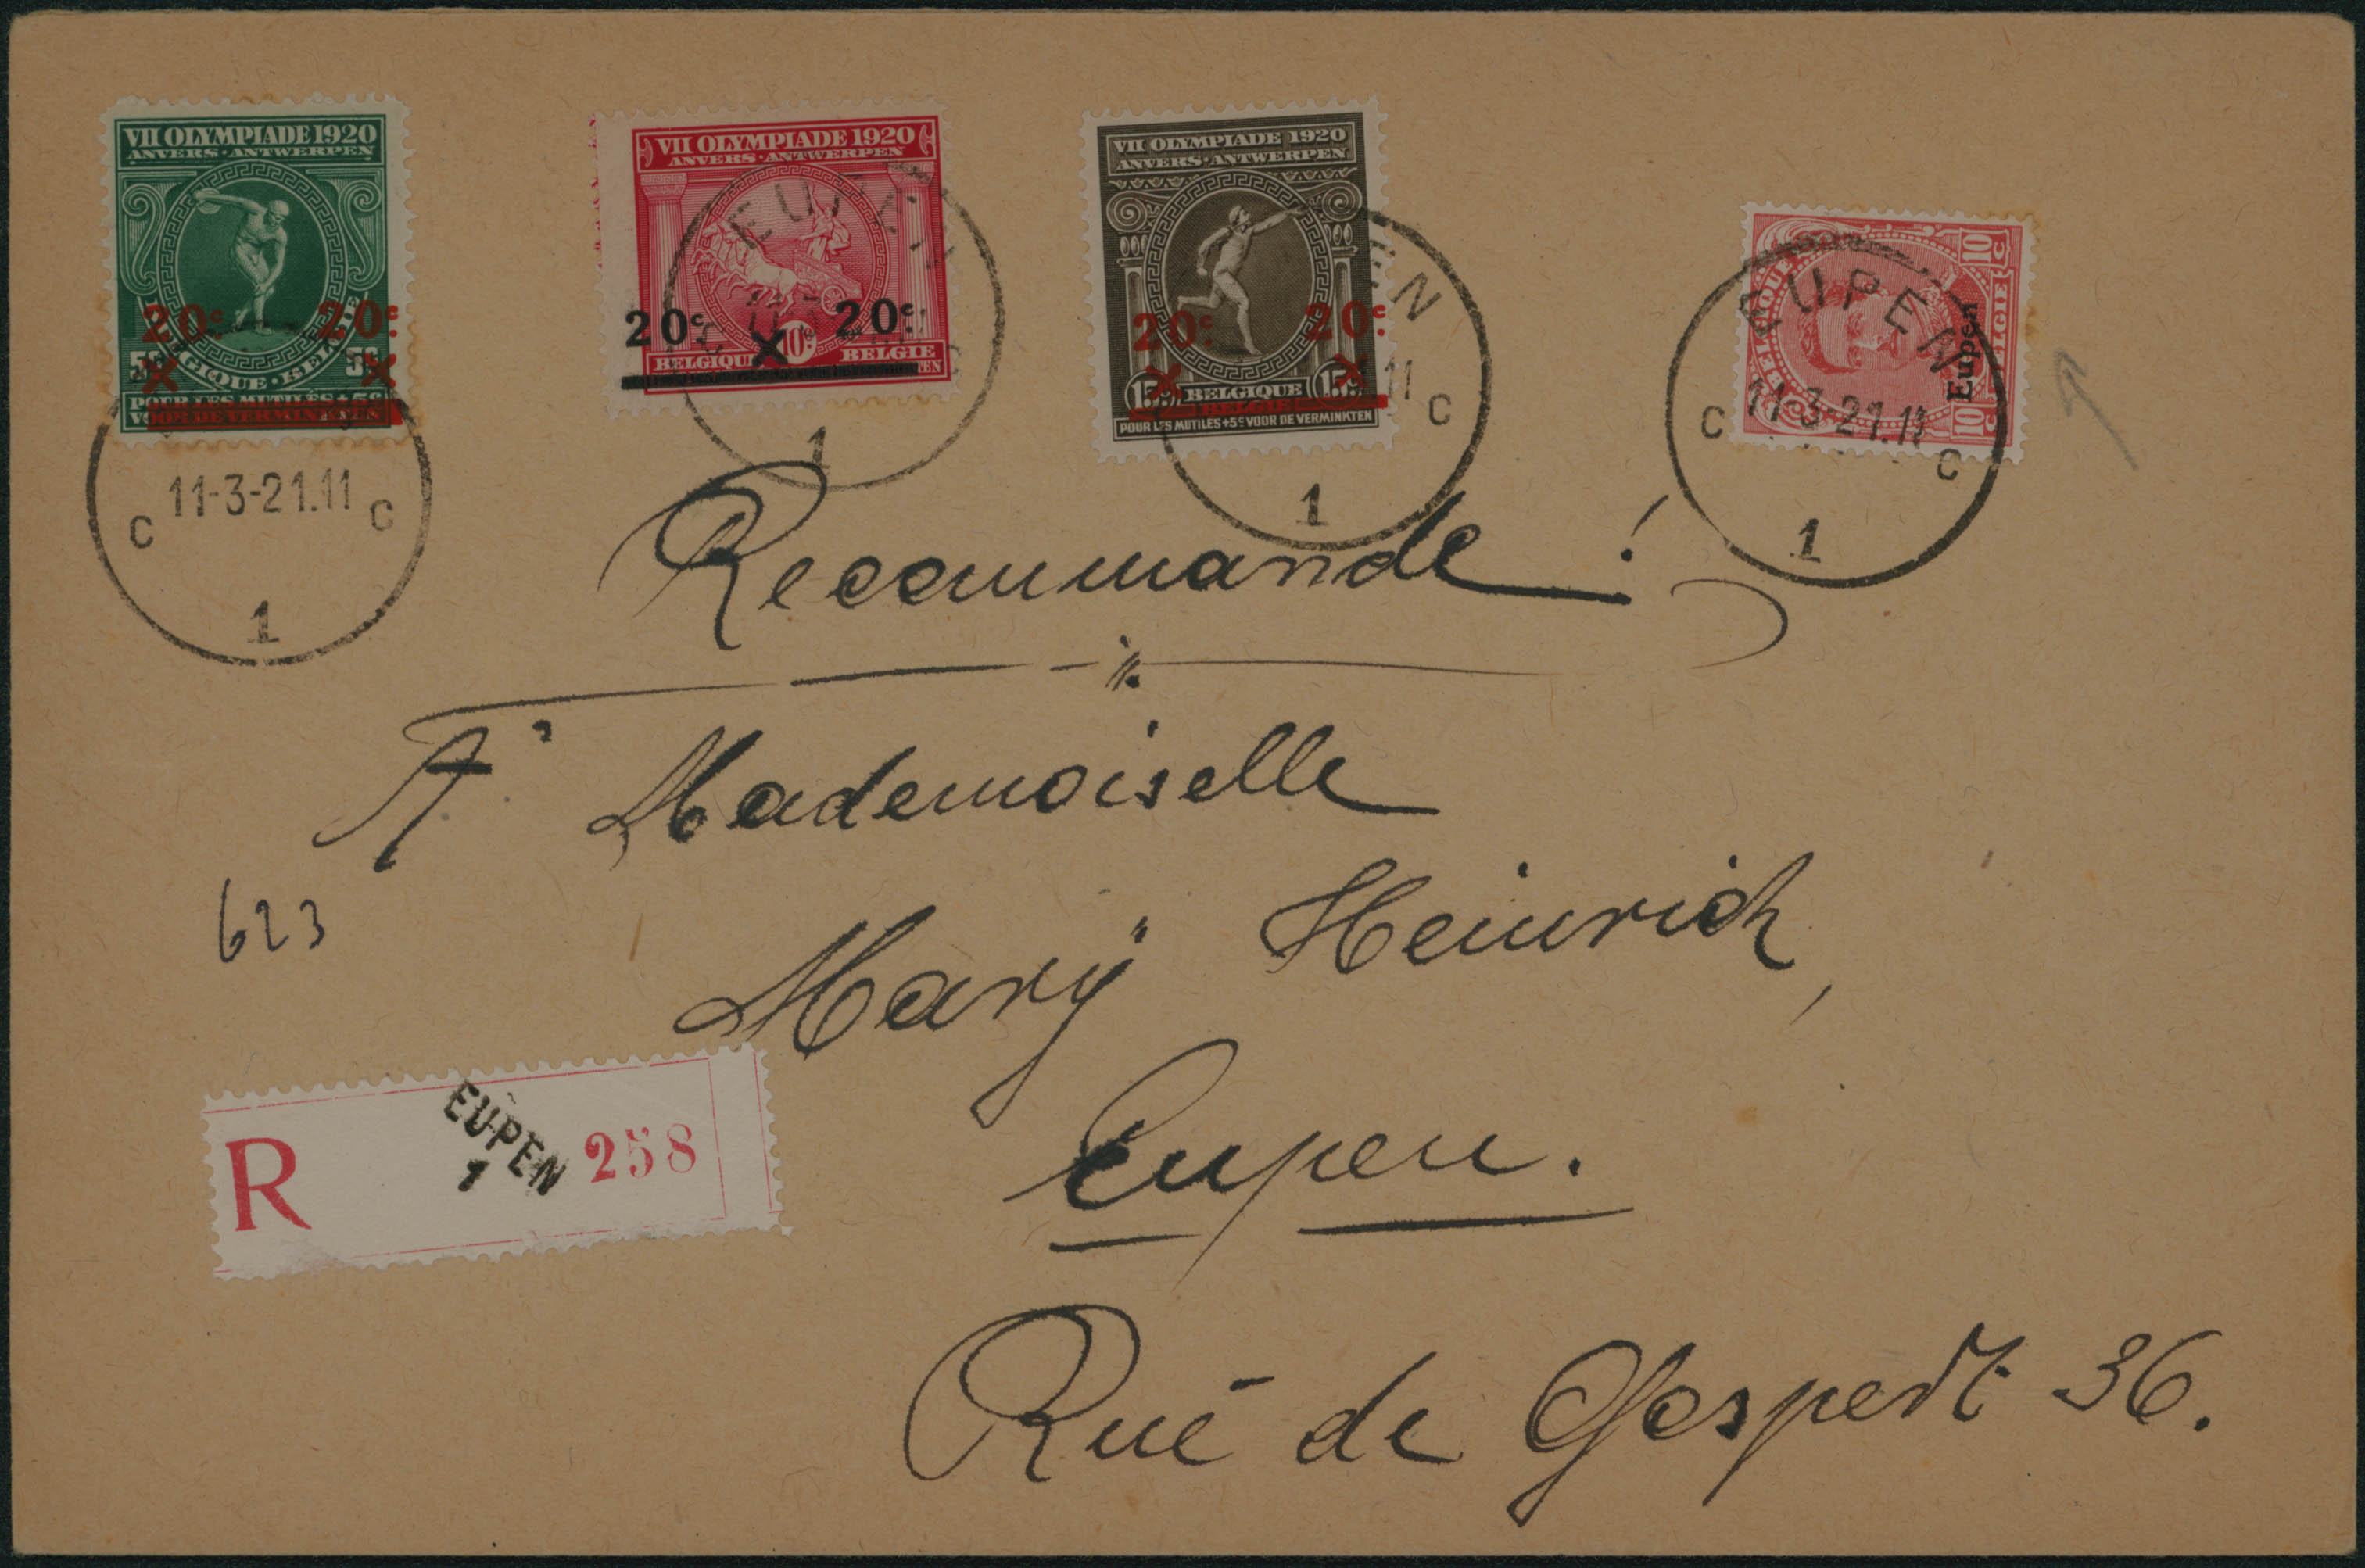 VII OLYMPIADE 1920
ANVERS·ANTWERPEN
20c 20c
5c 5c
BELGIQUE·BELGIE
POUR LES MUTILÉS+5c
VOOR DE VERMINKTEN
11-3-21.11
C C
1
VII OLYMPIADE 1920
ANVERS·ANTWERPEN
EUPEN
20c 20c
10c
BELGIQUE BELGIE
1
VII OLYMPIADE 1920
ANVERS·ANTWERPEN
20c 20c
15c BELGIQUE 15c
BELGIE
POUR LES MUTILÉS+5c VOOR DE VERMINKTEN
EN
11 C
1
10c
BELGIQUE BELGIE
10c
Eupen
EUPEN
C 11-3-21.11 C
1
Recommande !
A Mademoiselle
Marÿ Heinrich,
623
Eupen.
R EUPEN 1 258
Rue de Gospert 36.